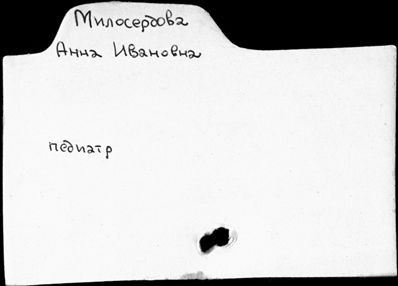 Милосердова
Анна Ивановна
педиатр